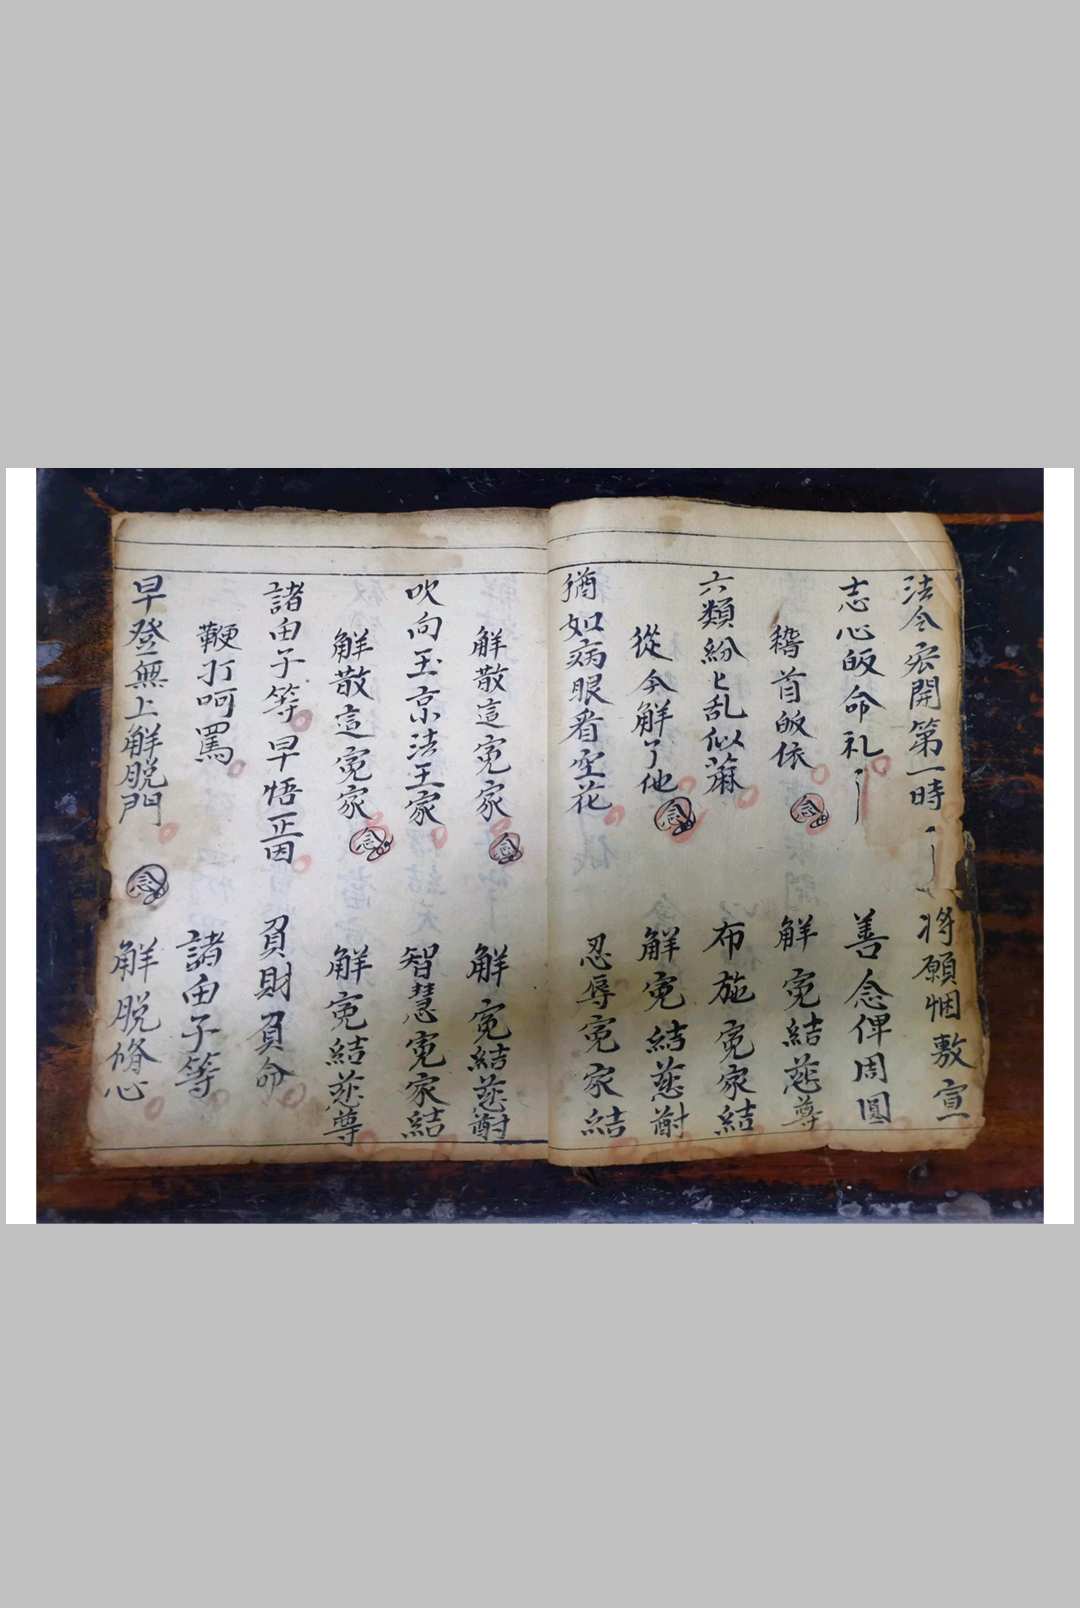 法令宏開第一時　將願悃敷宣
志心皈命礼　善念俾周圓
稽首皈依　念　解寃結慈尊
六類紛匕乱似蔴　布施寃家結
從今解了他　念　解寃結慈尊
猶如病眼看空花　忍辱寃家結
解散這寃家　念　解寃結慈尊
吹向玉京法王家　智慧寃家結
解散這寃家　念　解寃結慈尊
諸由子等　早悟正因　負財負命
鞭打呵罵　諸由子等
早登無上解脱門　念　解脱脩心